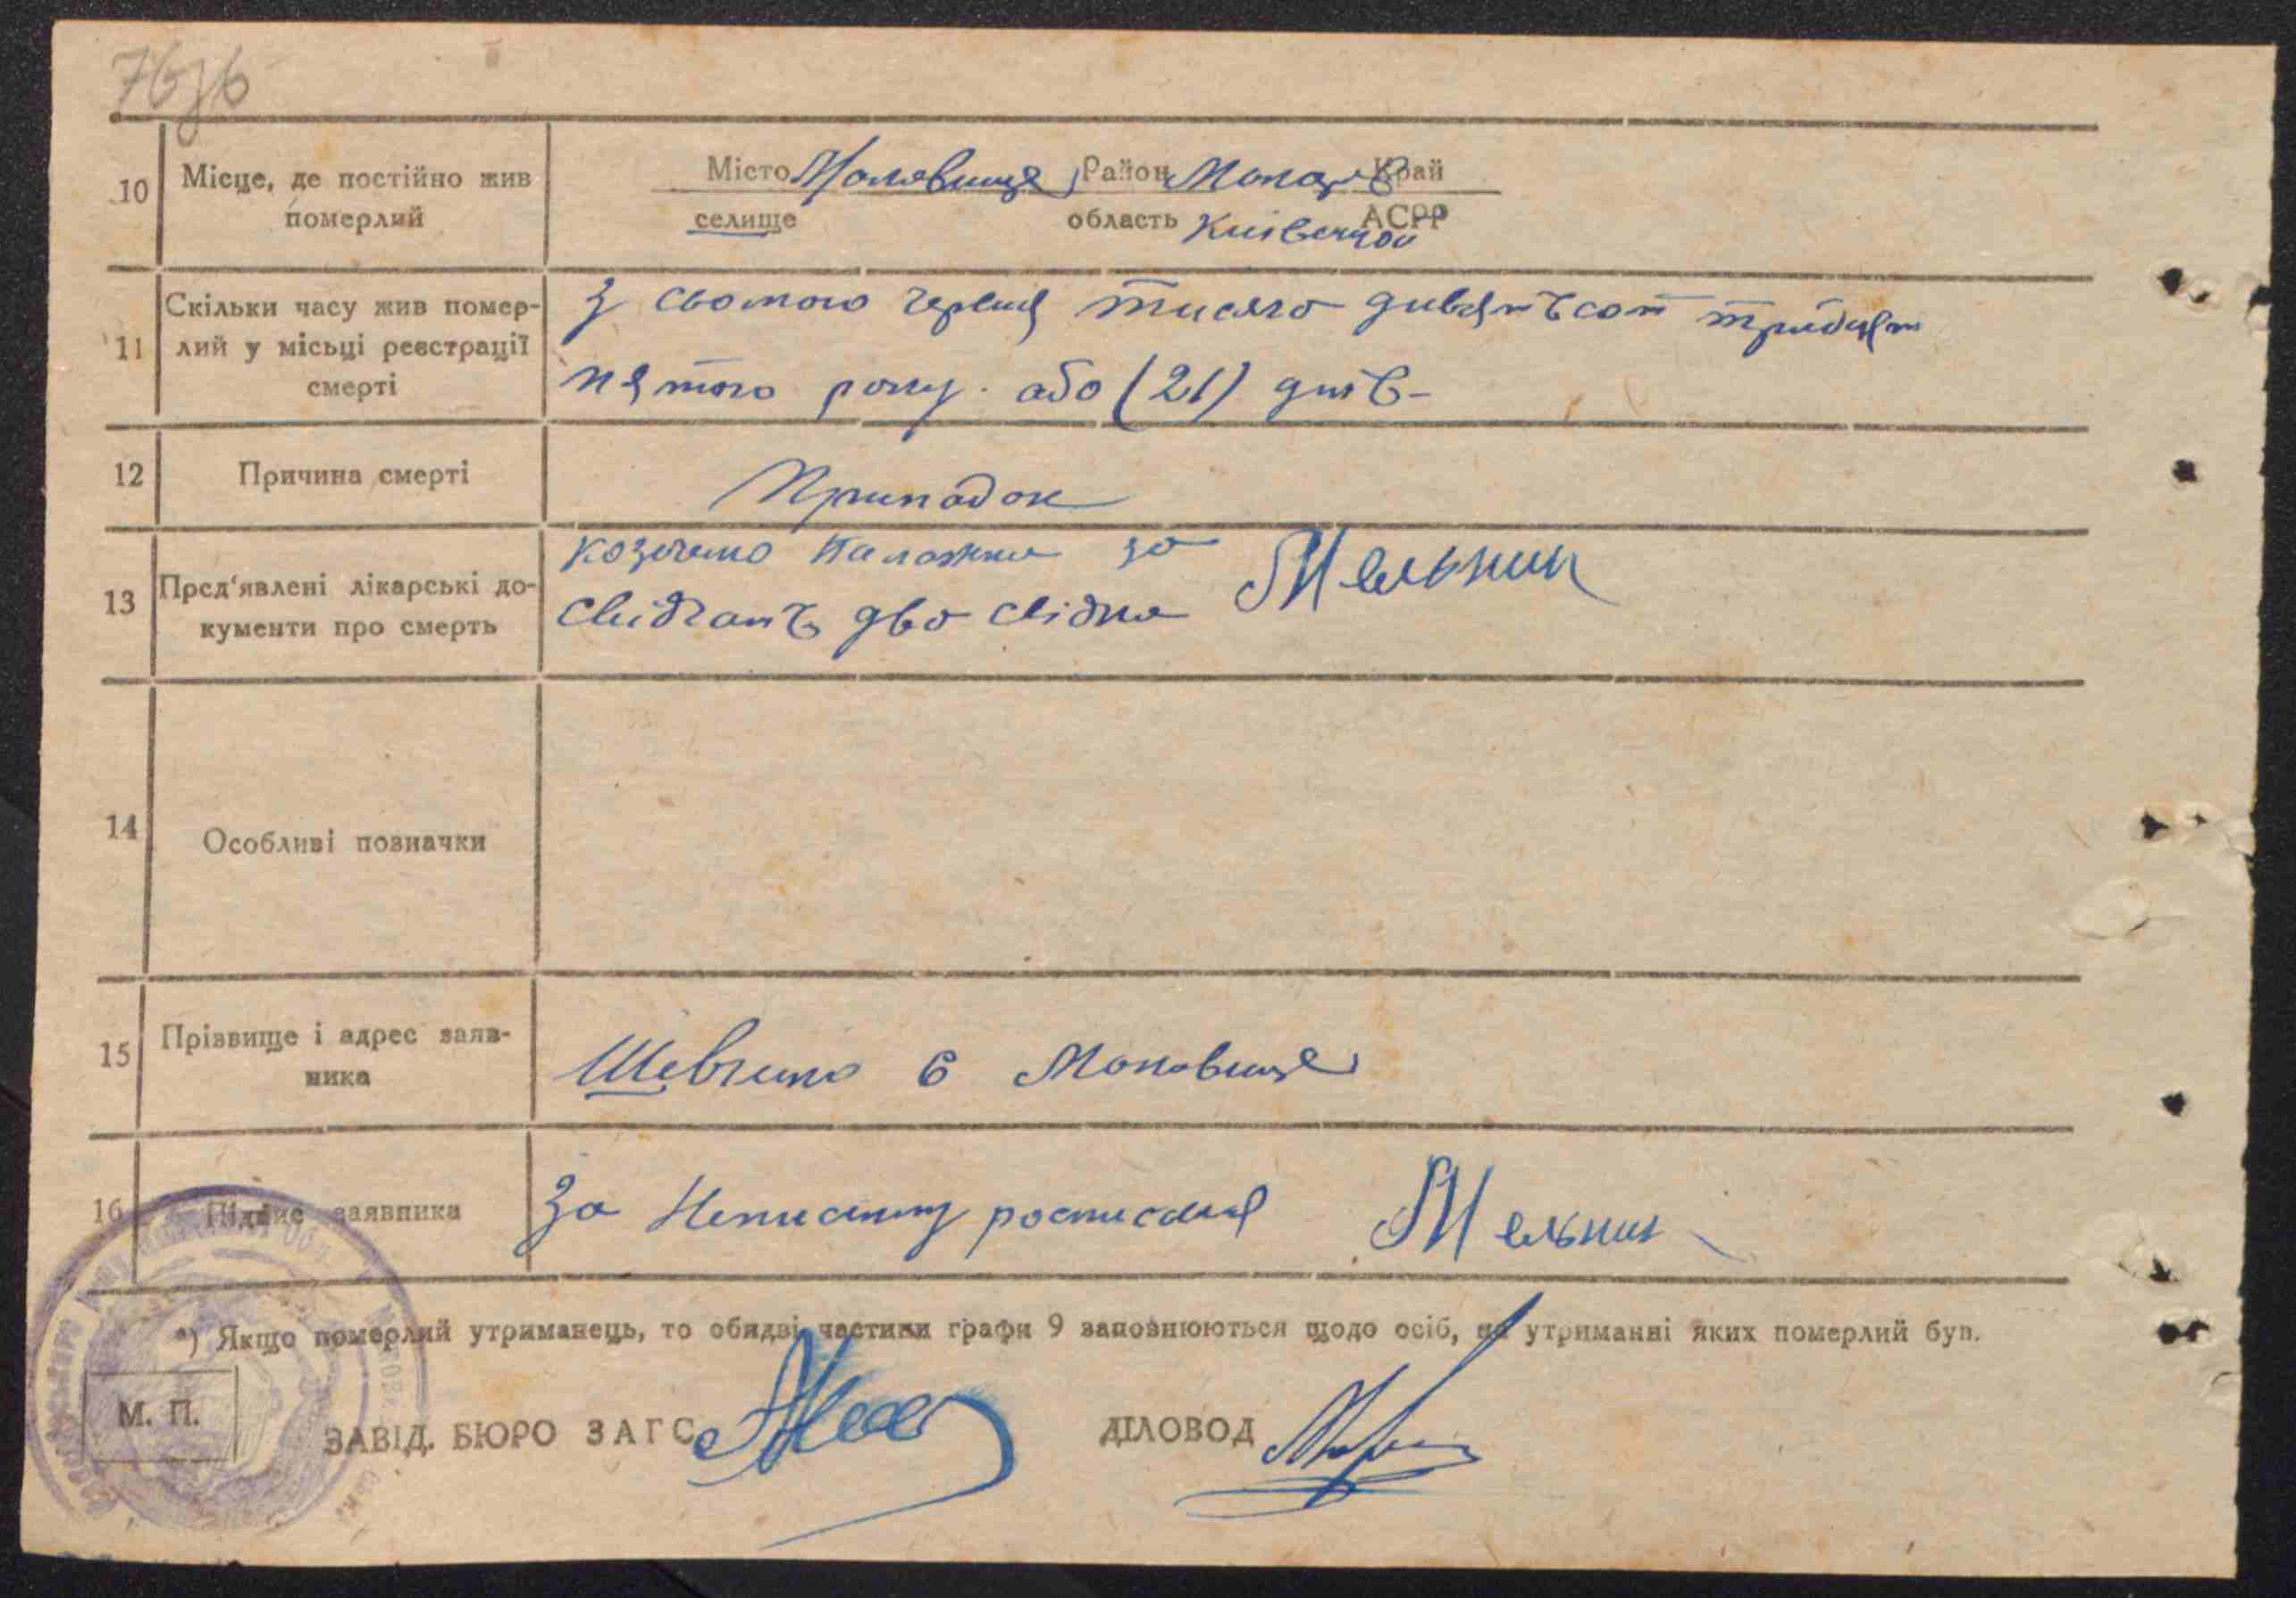 76зв
10 Місце, де постійно жив померлий
Місто Маковище Район Макарів Край
селище область Київської АСРР
11 Скільки часу жив помер-
лий у місці реєстрації
смерті
З сьомого червня тисяча дивятьсот тридцят
пятого року. або (21) днів-
12 Причина смерті
Припадок
13 Пред'явлені лікарські до-
кументи про смерть
за Мельник
свідчать два свідка
14 Особливі позначки
15 Прізвище і адрес заяв-
ника
Шевченко с Маковище
16 Підпис заявника
За Неписьмену росписався Мельник
*) Якщо померлий утриманець, то обидві частини графи 9 заповнюються щодо осіб, на утриманні яких померлий був.
М. П.
ЗАВІД. БЮРО ЗАГС
ДІЛОВОД